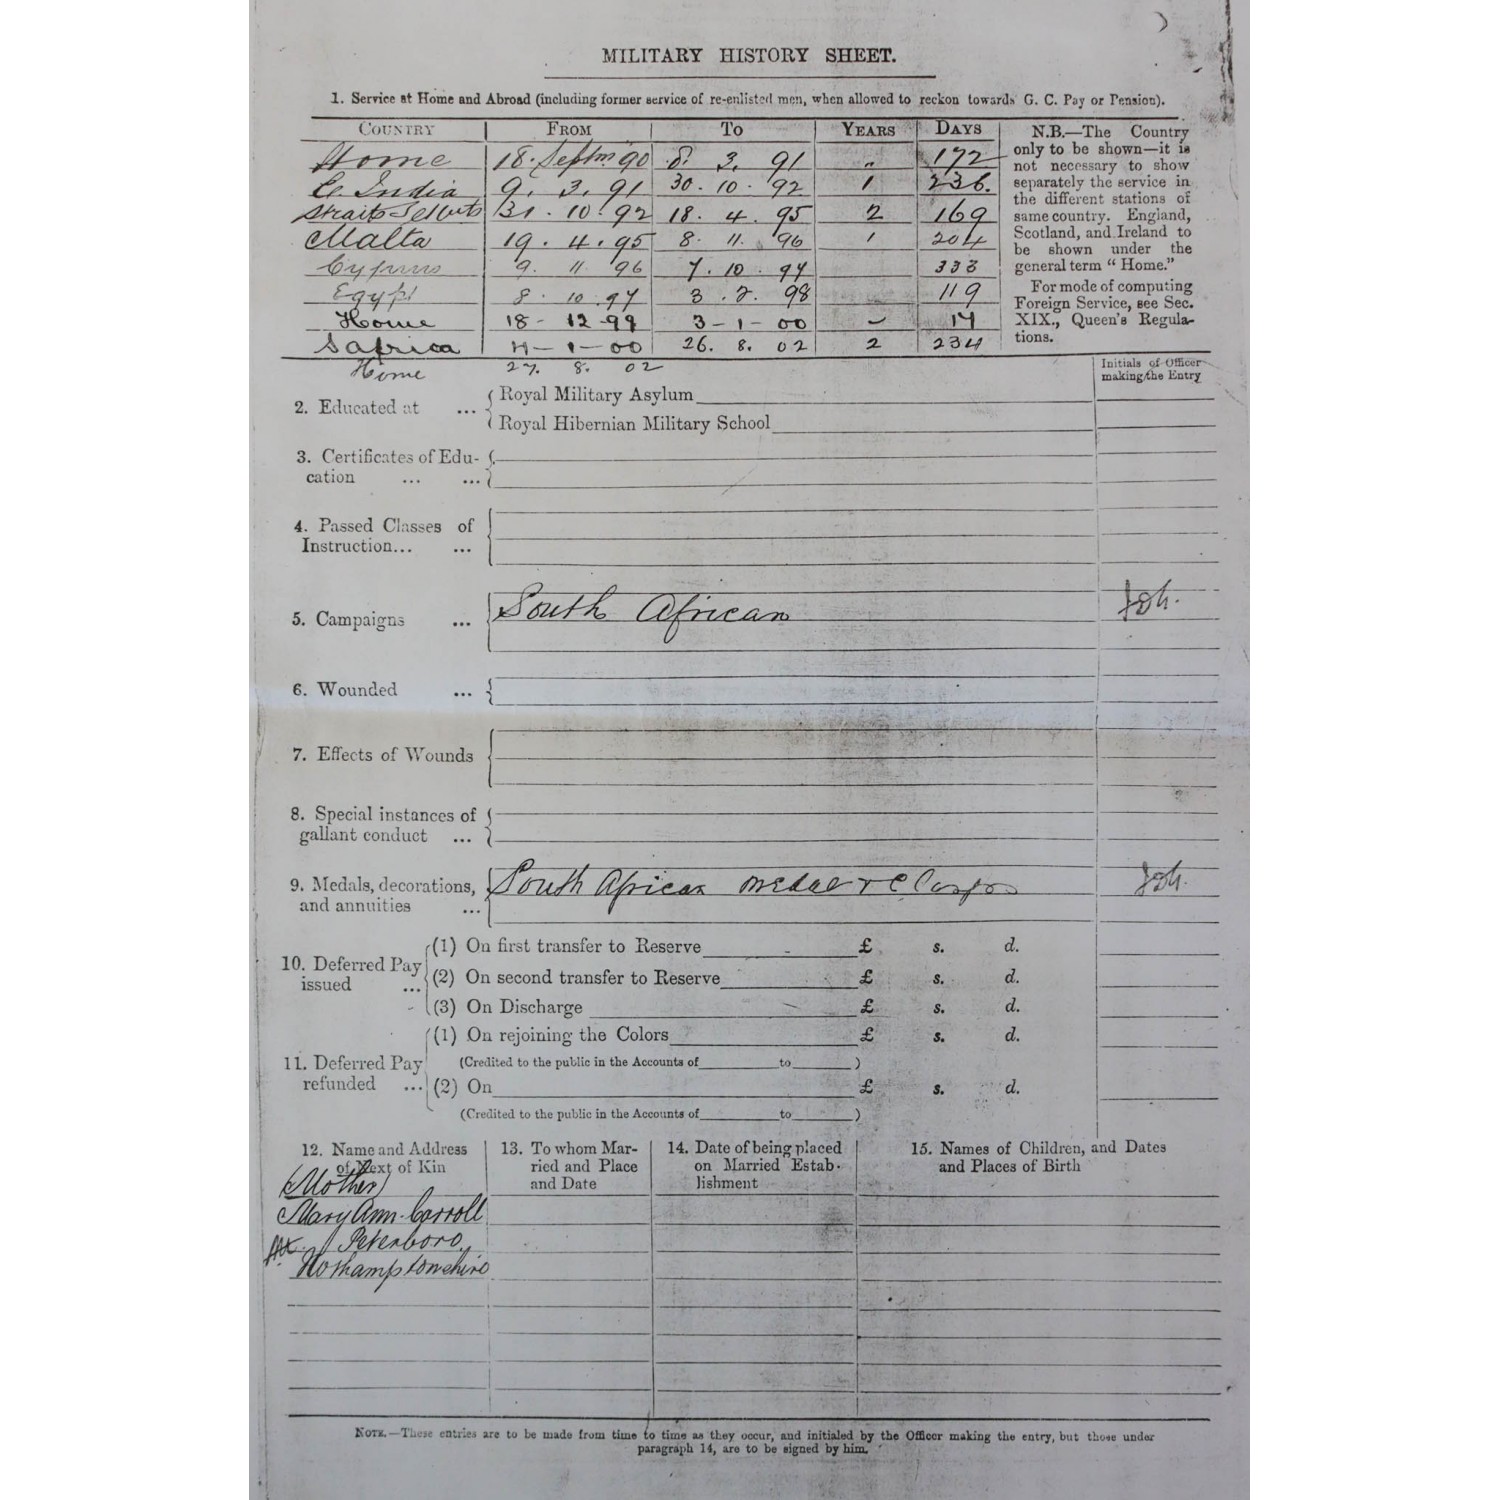 MILITARY HISTORY SHEET.
1. Service at Home and Abroad (including former service of re-enlisted men, when allowed to reckon towards G. C. Pay or Pension).
COUNTRY FROM TO YEARS DAYS
Home 18. Septm 90 8. 3. 91 „ 172
E. India 9. 3. 91 30. 10. 92 1 236.
Straits Settlmts 31. 10. 92 18. 4. 95 2 169
Malta 19. 4. 95 8. 11. 96 1 204
Cyprus 9. 11. 96 7. 10. 97 333
Egypt 8. 10. 97 3. 2. 98 119
Home 18 - 12 - 99 3 - 1 - 00 - 17
S africa 4 - 1 - 00 26. 8. 02 2 234
Home 27. 8. 02
N.B.—The Country
only to be shown—it is
not necessary to show
separately the service in
the different stations of
same country. England,
Scotland, and Ireland to
be shown under the
general term “Home.”
For mode of computing
Foreign Service, see Sec.
XIX., Queen's Regula-
tions.
Initials of Officer
making the Entry
2. Educated at ... Royal Military Asylum
Royal Hibernian Military School
3. Certificates of Edu-
cation ... ...
4. Passed Classes of
Instruction... ...
5. Campaigns ... South African
6. Wounded ...
7. Effects of Wounds
8. Special instances of
gallant conduct ...
9. Medals, decorations,
and annuities ... South African medal
10. Deferred Pay
issued ...
(1) On first transfer to Reserve £ s. d.
(2) On second transfer to Reserve £ s. d.
(3) On Discharge £ s. d.
11. Deferred Pay
refunded ...
(1) On rejoining the Colors £ s. d.
(Credited to the public in the Accounts of to )
(2) On £ s. d.
(Credited to the public in the Accounts of to )
12. Name and Address
of Next of Kin
13. To whom Mar-
ried and Place
and Date
14. Date of being placed
on Married Estab-
lishment
15. Names of Children, and Dates
and Places of Birth
(Mother)
Mary Ann. Carroll
Peterboro,
Northamptonshire
NOTE.—These entries are to be made from time to time as they occur, and initialed by the Officer making the entry, but those under
paragraph 14, are to be signed by him.